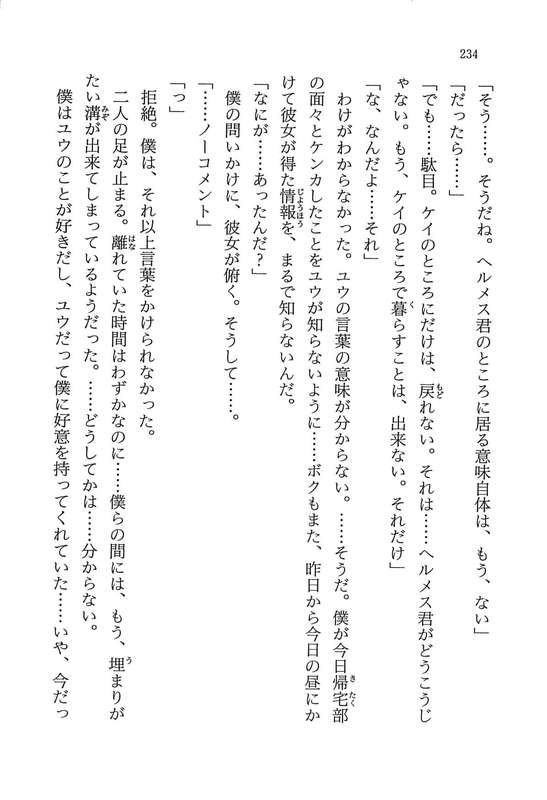 234
「そう……。そうだね。ヘルメス君のところに居る意味自体は、もう、ない」
「だったら……」
「でも……駄目。ケイのところにだけは、戻れない。それは……ヘルメス君がどうこうじ
ゃない。もう、ケイのところで暮らすことは、出来ない。それだけ」
「な、なんだよ……それ」
わけがわからなかった。ユウの言葉の意味が分からない。……そうだ。僕が今日帰宅部
の面々とケンカしたことをユウが知らないように……ボクもまた、昨日から今日の昼にか
けて彼女が得た情報を、まるで知らないんだ。
「なにが……あったんだ?」
僕の問いかけに、彼女が俯く。そうして……。
「……ノーコメント」
「っ」
拒絶。僕は、それ以上言葉をかけられなかった。
二人の足が止まる。離れていた時間はわずかなのに……僕らの間には、もう、埋まりが
たい溝が出来てしまっているようだった。……どうしてかは……分からない。
僕はユウのことが好きだし、ユウだって僕に好意を持ってくれていた……いや、今だっ